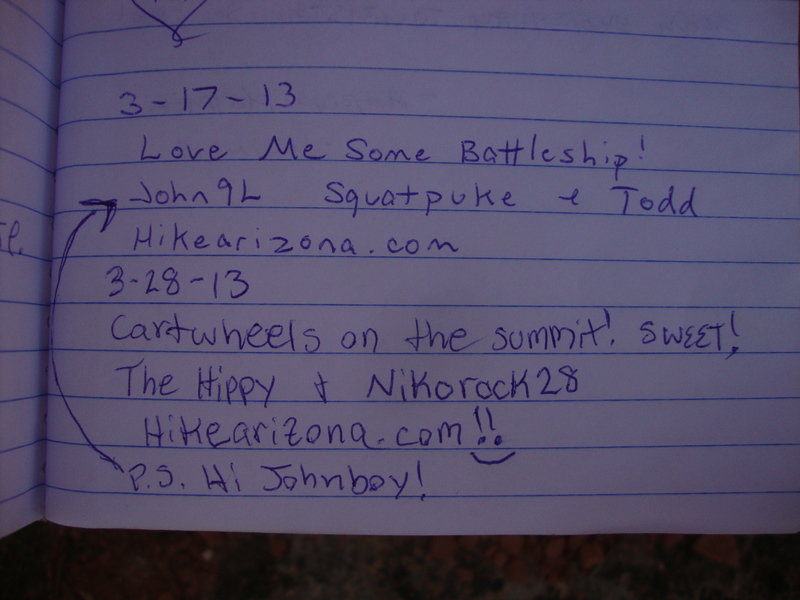 3-17-13
Love Me Some Battleship!
John9L Squatpuke & Todd
Hikearizona.com
3-28-13
Cartwheels on the summit! SWEET!
The Hippy & Nikorock28
Hikearizona.com!!
P.S. Hi Johnboy!